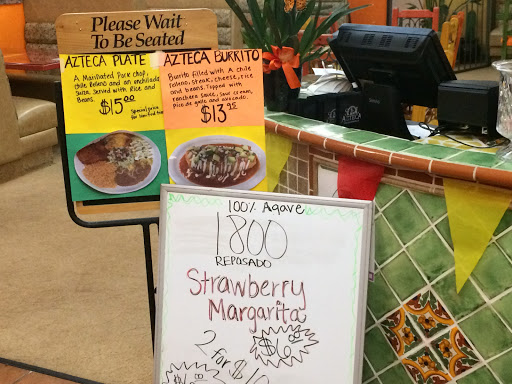 Please Wait
To Be Seated
AZTECA PLATE
A Marinated Pork chop,
chile Relleno and an enchilada
Suiza. Served with Rice and
Beans.
$15.00
Special price
for limited time
AZTECA BURRITO
Burrito filled with A chile
relleno, steak, cheese, rice
and beans. Topped with
ranchera sauce, sour cream,
Pico de gallo and avocado.
$13.95
AZTECA
100% Agave
1800
REPOSADO
Strawberry
Margarita
2 for $10